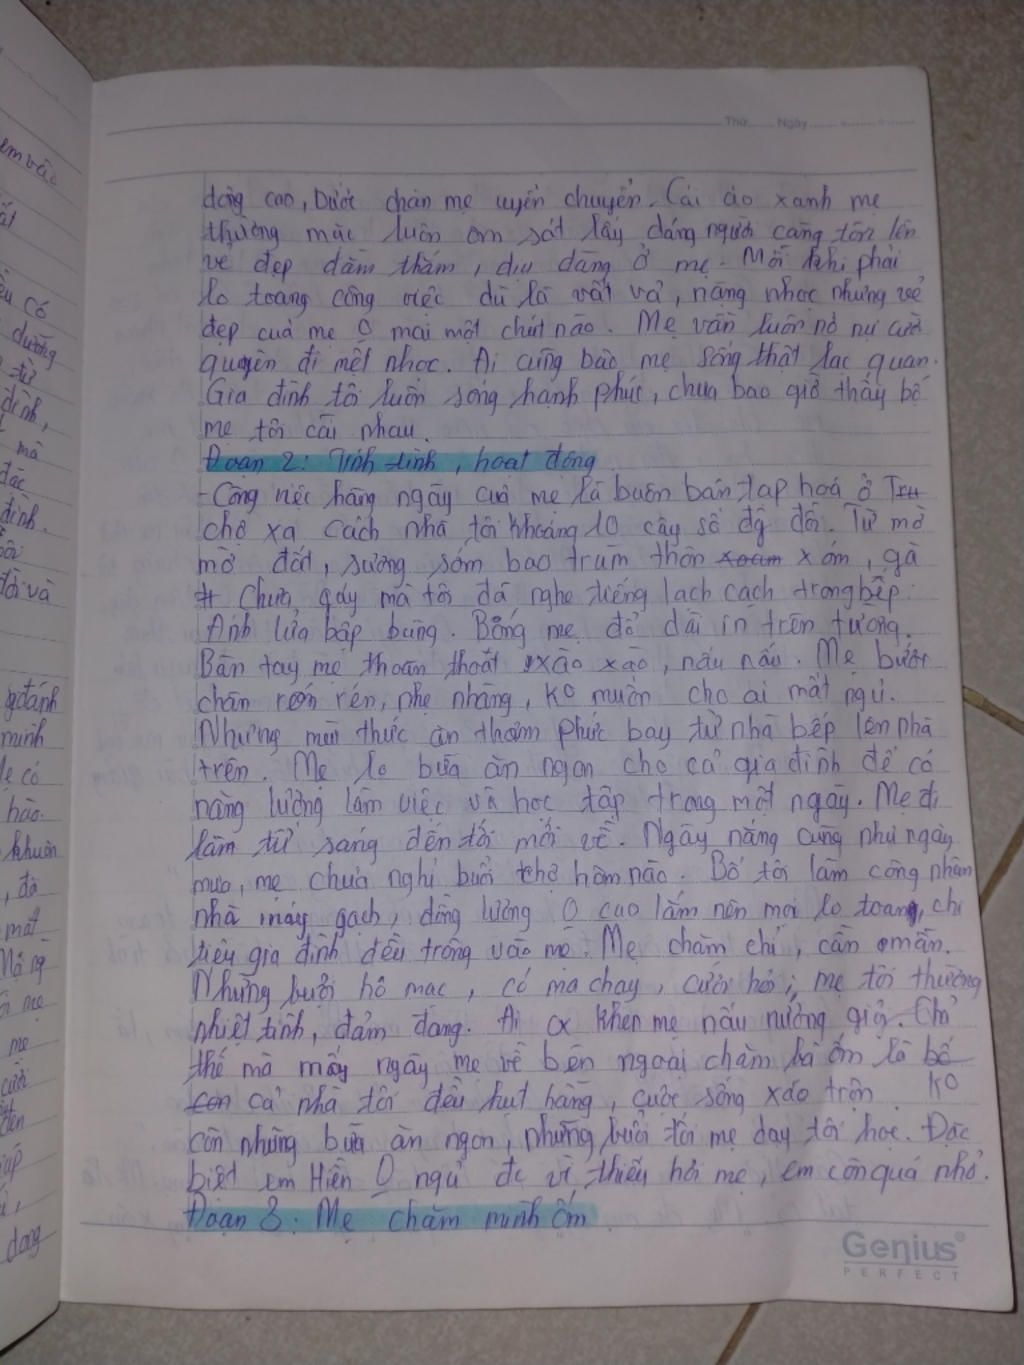 Thứ Ngày
dong cao, Bước chân mẹ uyển chuyển. Cái áo xanh mẹ
thường mặc luôn ôm sát lấy dáng người càng tôn lên
vẻ đẹp đằm thắm, dịu dàng ở mẹ. Mỗi khi phải
lo toang công việc dù là vất vả, nặng nhọc nhưng vẻ
đẹp của mẹ O mai một chút nào. Mẹ vẫn luôn nở nụ cười
quyên đi mệt nhọc. Ai cũng bảo mẹ sống thật lạc quan.
Gia đình tôi luôn sống hạnh phúc, chưa bao giờ thấy bố
mẹ tôi cãi nhau.
Đoạn 2: Tính tình, hoạt động
- Công việc hằng ngày của mẹ là buôn bán tạp hoá ở
chợ xa cách nhà tôi khoảng 10 cây số đg đồi. Từ mờ
mờ đất, sương sớm bao trùm thôn xóm, gà
chưa gáy mà tôi đã nghe tiếng lạch cạch trong bếp.
Ánh lửa bập bùng. Bóng mẹ đổ dài in trên tường.
Bàn tay mẹ thoăn thoắt xào xào, nấu nấu. Mẹ bước
chân rón rén, nhẹ nhàng, ko muốn cho ai mất ngủ.
Nhưng mùi thức ăn thơm phức bay từ nhà bếp lên nhà
trên. Mẹ lo bữa ăn ngon cho cả gia đình để có
năng lượng làm việc và học tập trong một ngày. Mẹ đi
làm từ sáng đến tối mới về. Ngày nắng cũng như ngày
mưa, mẹ chưa nghỉ buổi chợ hôm nào. Bố tôi làm công nhân
nhà máy gạch, đồng lương O cao lắm nên mọi lo toang, chi
tiêu gia đình đều trông vào mẹ. Mẹ chăm chỉ, cần mẫn.
Những buổi hô mạc, có ma chay, cưới hỏi, mẹ tôi thường
nhiệt tình, đảm đang. Ai cx khen mẹ nấu nướng giỏi. Chỉ
thế mà mấy ngày mẹ về bên ngoại chăm bà ốm là bố
con cả nhà tôi đều hụt hẫng, cuộc sống xáo trộn. KO
còn những bữa ăn ngon, những buổi tối mẹ dạy tôi học. Đặc
biệt em Hiền O ngủ đc vì thiếu hơi mẹ, em còn quá nhỏ.
Đoạn 3: Mẹ chăm mình ốm
Genius
PERFECT
em vào
có
dường
từ
đình,
mà
đặc
đình.
đời và
mình
có
hào.
khuôn
, đô
mắt
mẹ
mẹ
cười
dong